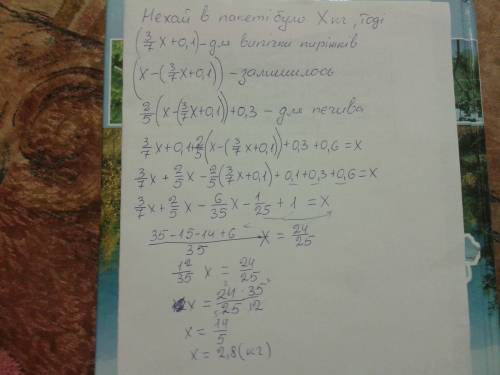 Нехай в пакеті було X кг, тоді
(3/7 x + 0,1) - для випічки пиріжків
(x - (3/7 x + 0,1)) - залишилось
2/5 (x - (3/7 x + 0,1)) + 0,3 - для печива
3/7 x + 0,1 + 2/5 (x - (3/7 x + 0,1)) + 0,3 + 0,6 = x
3/7 x + 2/5 x - 2/5 (3/7 x + 0,1) + 0,1 + 0,3 + 0,6 = x
3/7 x + 2/5 x - 6/35 x - 1/25 + 1 = x
(35 - 15 - 14 + 6)/35 x = 24/25
12/35 x = 24/25
x = (24 · 35)/(25 · 12)
x = 14/5
x = 2,8 (кг)